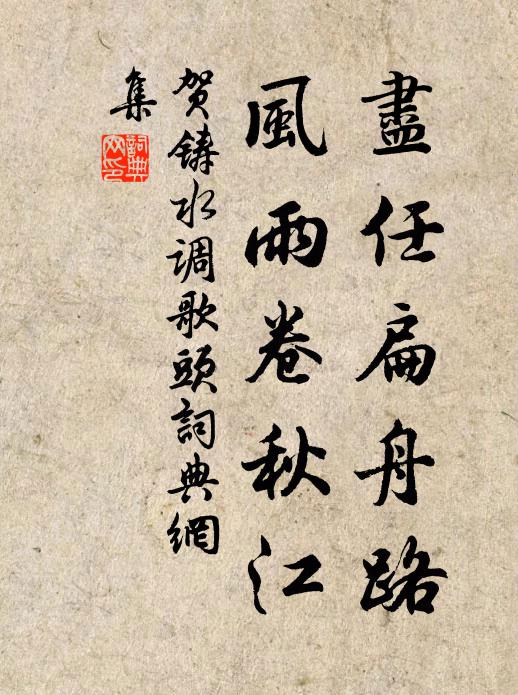 盡任扁舟路
風雨卷秋江
贺鑄水调歌頭詞典網
集
詞典
网印